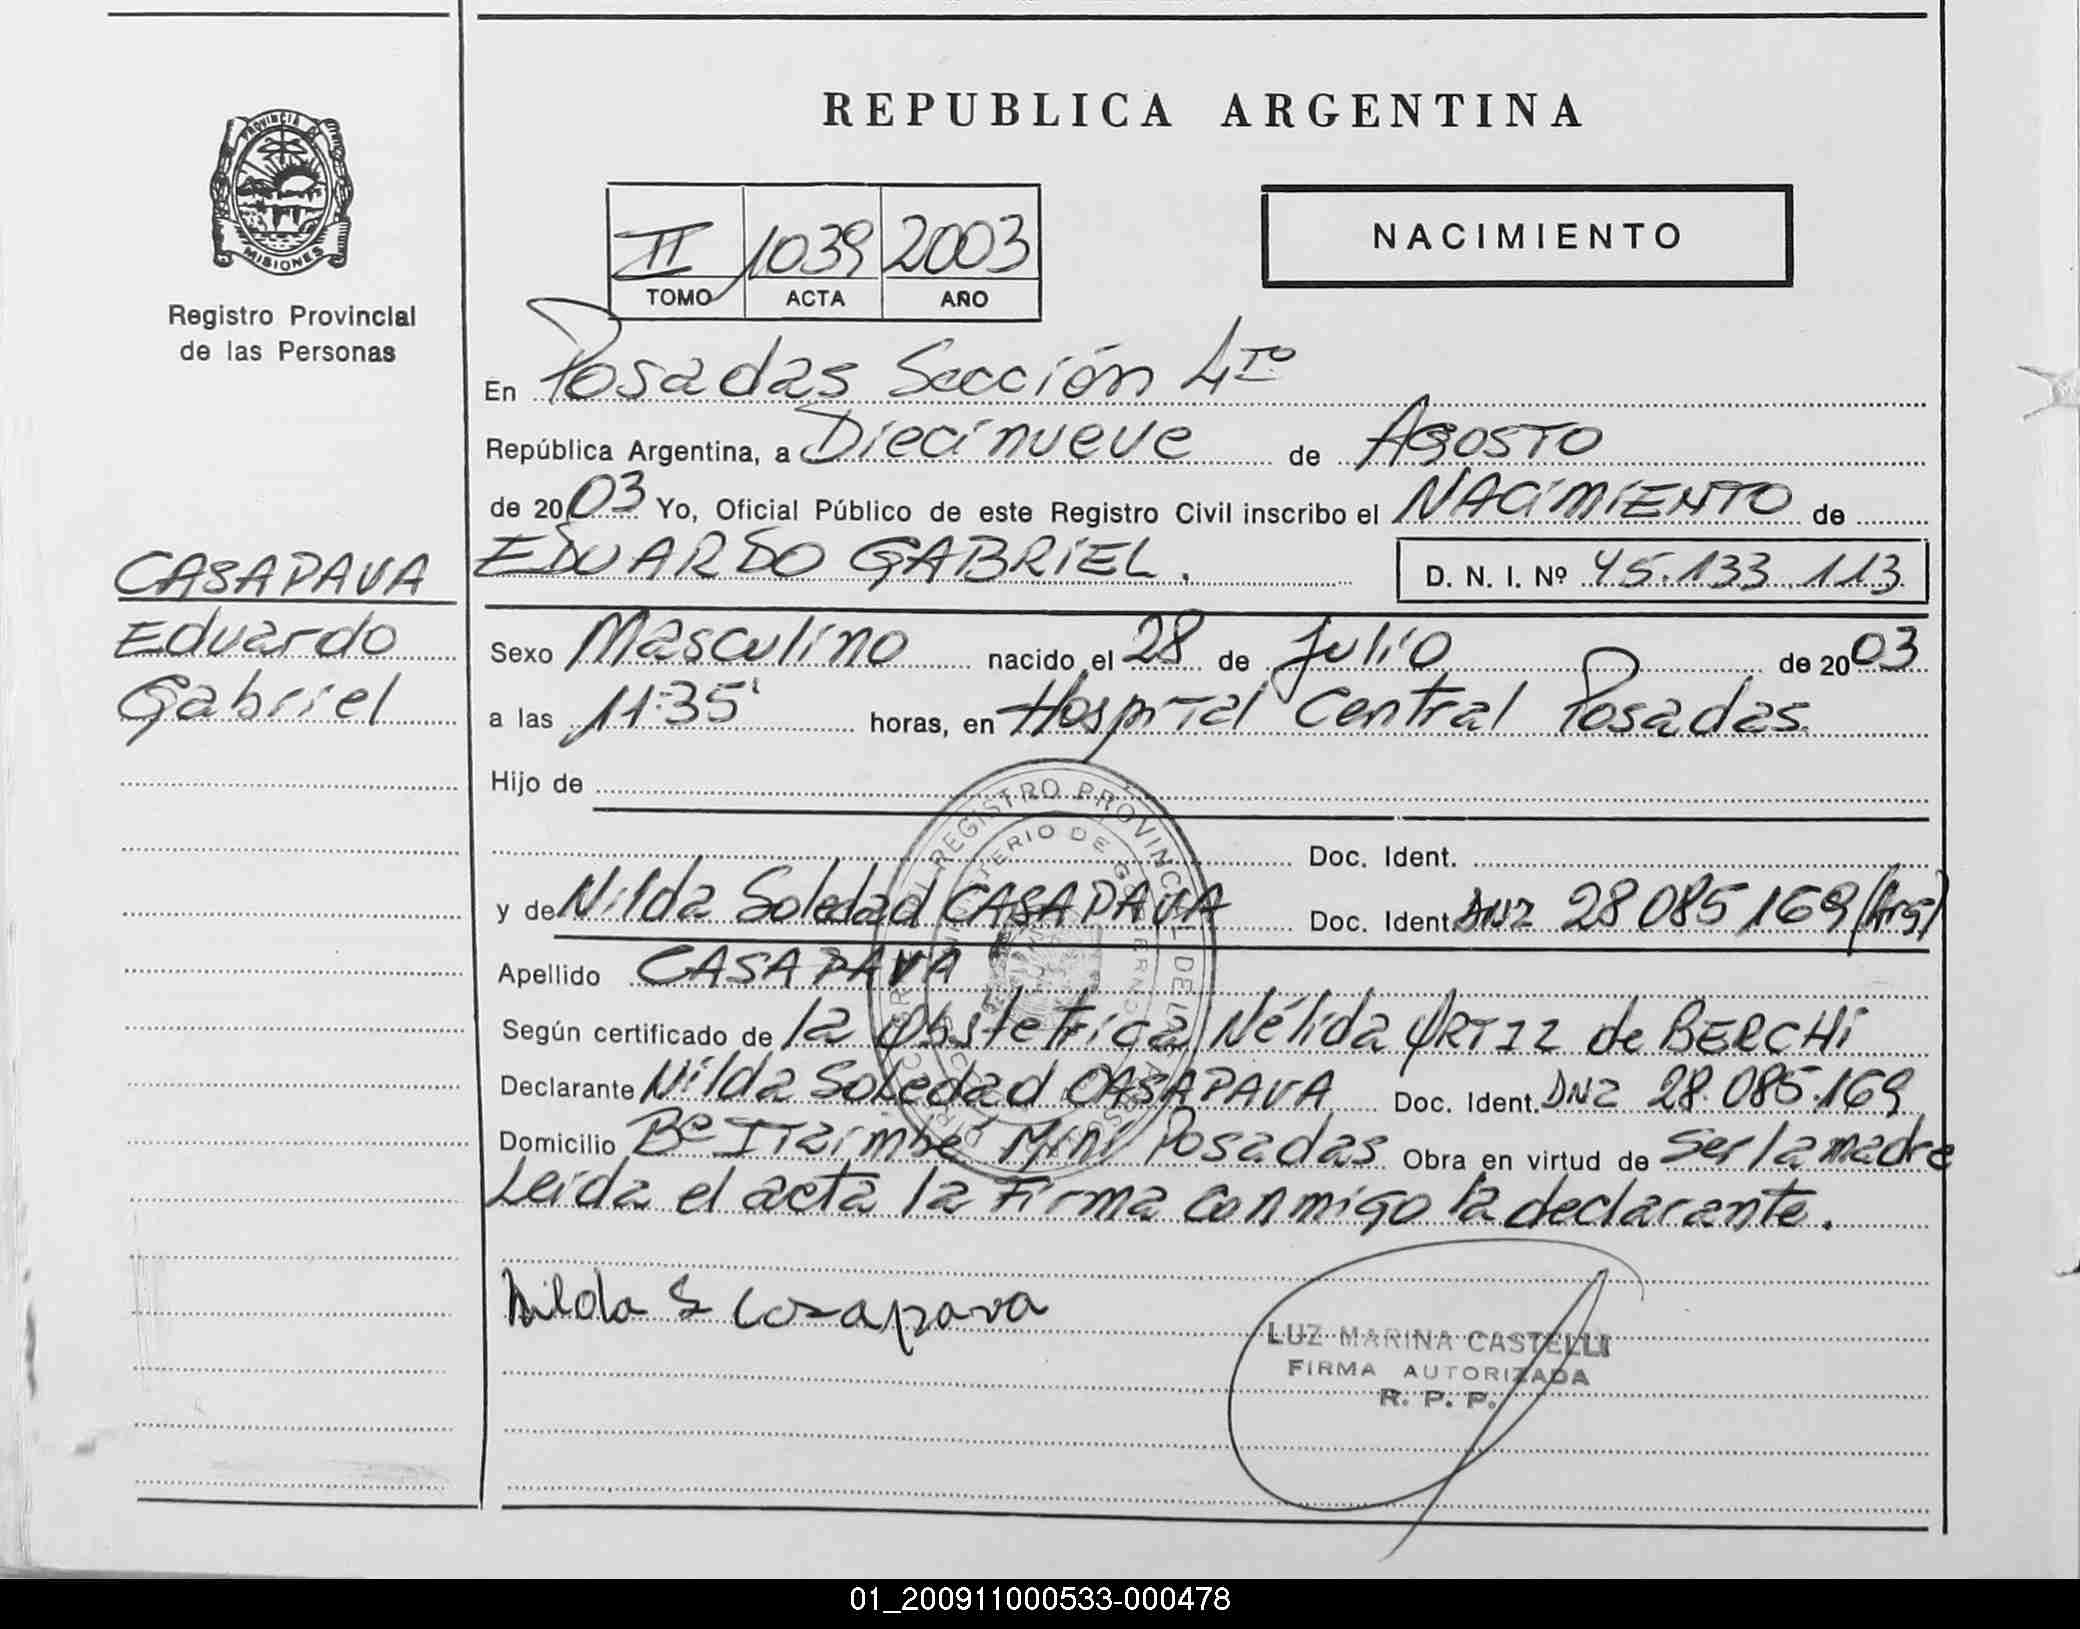 REPUBLICA ARGENTINA
PROVINCIA DE
MISIONES
Registro Provincial
de las Personas
NACIMIENTO
II 1039 2003
TOMO ACTA AÑO
En Posadas Sección 4to
República Argentina, a Diecinueve de AGOSTO
de 2003 Yo, Oficial Público de este Registro Civil inscribo el NACIMIENTO de
EDUARDO GABRIEL. D. N. I. Nº 45.133 113
CASAPAVA
Eduardo
Gabriel
Sexo Masculino nacido el 28 de Julio de 2003
a las 11:35' horas, en Hospital Central Posadas.
Hijo de
Doc. Ident.
y de Nilda Soledad CASAPAVA Doc. Ident. DNI 28 085 169 (Arg)
Apellido CASAPAVA
Según certificado de la Obstetrica Nélida ORTIZ de BERCHI
Declarante Nilda Soledad CASAPAVA Doc. Ident. DNI 28.085.169
Domicilio Bº Itaimbé Miní Posadas Obra en virtud de ser la madre
Leida el acta la Firma conmigo la declarante.
REGISTRO PROVINCIAL DE
MINISTERIO DE GOBIERNO
Nilda S Casapava
LUZ MARINA CASTELLI
FIRMA AUTORIZADA
R. P. P.
01_200911000533-000478